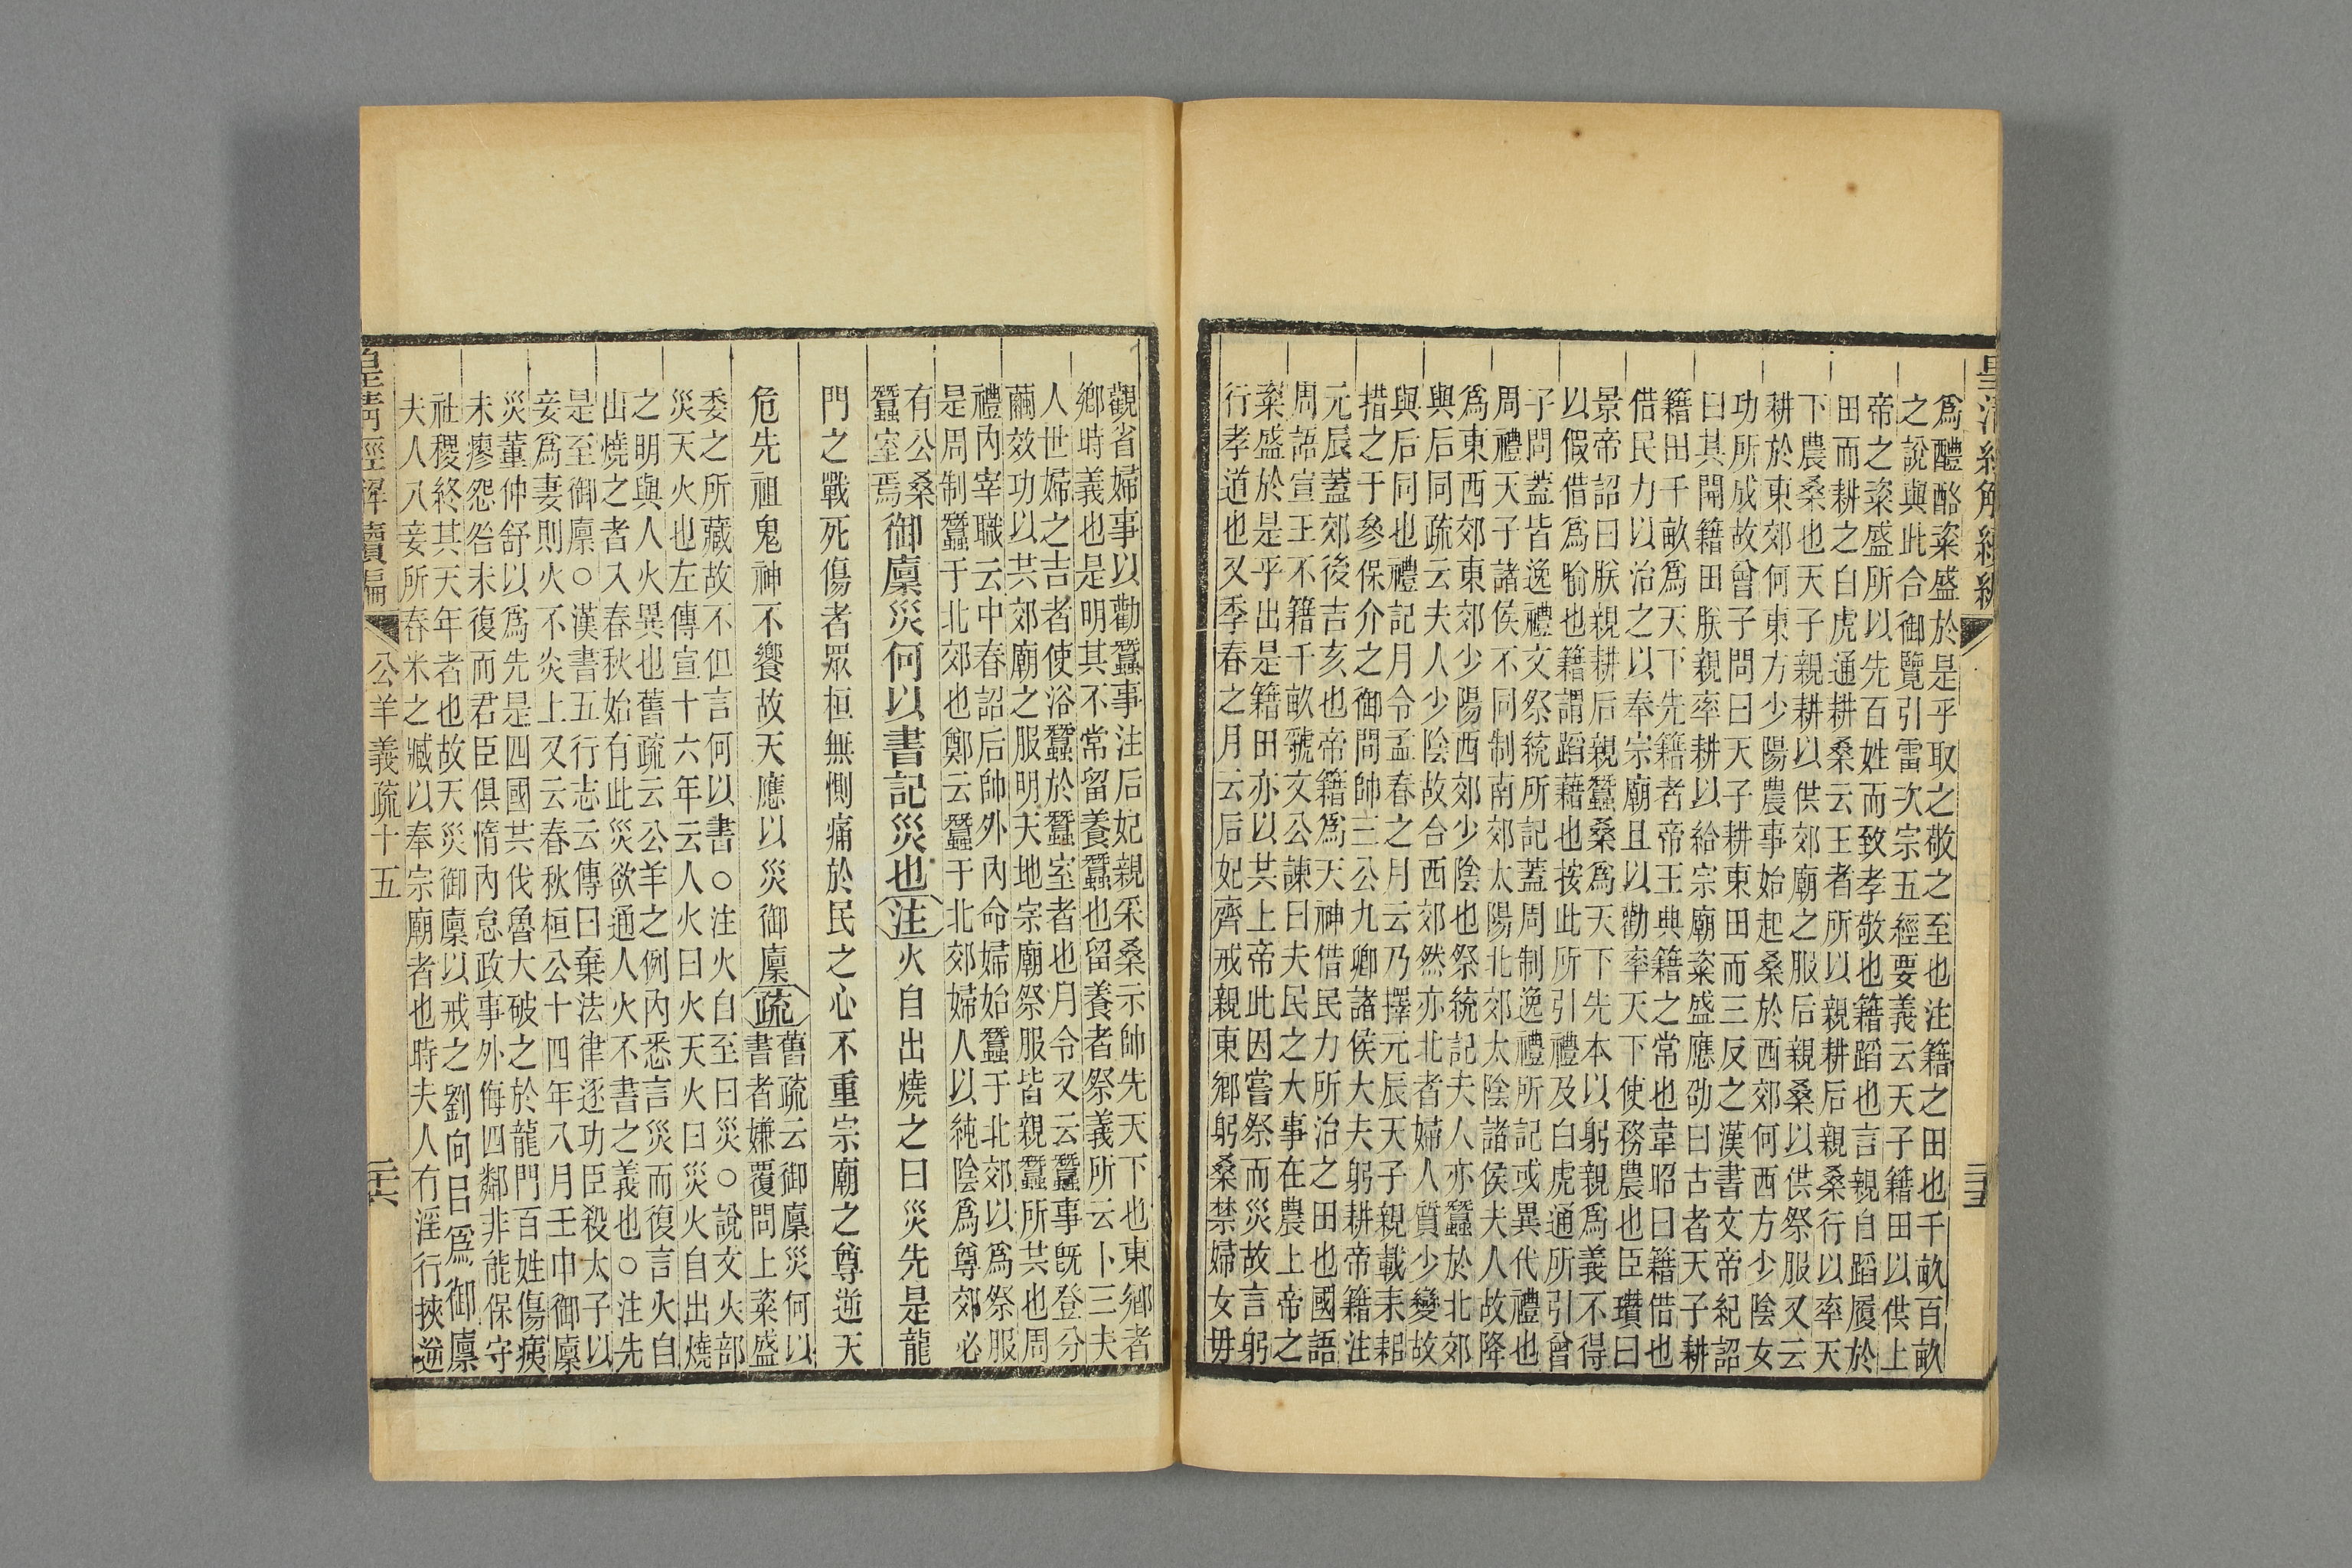 皇清經解續編
二十五
爲醴酪粢盛於是乎取之敬之至也注籍之田也千畝百畝
之說與此合御覽引雷次宗五經要義云天子籍田以供上
帝之粢盛所以先百姓而致孝敬也籍蹈也言親自蹈履於
田而耕之白虎通耕桑云王者所以親耕后親桑行以率天
下農桑也天子親耕以供郊廟之服后親桑以供祭服又云
耕於東郊何東方少陽農事始起桑於西郊何西方少陰女
功所成故曾子問曰天子耕東田而三反之漢書文帝紀詔
曰其開籍田朕親率耕以給宗廟粢盛應劭曰古者天子耕
籍田千畝爲天下先籍者帝王典籍之常也韋昭曰籍借也
借民力以治之以奉宗廟且以勸率天下使務農也臣瓚曰
景帝詔曰朕親耕后親蠶桑爲天下先本以躬親爲義不得
以假借爲喻也籍謂蹈藉也按此所引禮及白虎通所引曾
子問蓋皆逸禮文祭統所記蓋周制逸禮所記或異代禮也
周禮天子諸侯不同制南郊太陽北郊太陰諸侯夫人故降
爲東西郊東郊少陽西郊少陰也祭統記夫人亦蠶於北郊
與后同疏云夫人少陰故合西郊然亦北者婦人質少變故
與后同也禮記月令孟春之月云乃擇元辰天子親載耒耜
措之于參保介之御間帥三公九卿諸侯大夫躬耕帝籍注
元辰蓋郊後吉亥也帝籍爲天神借民力所治之田也國語
周語宣王不籍千畝虢文公諫曰夫民之大事在農上帝之
粢盛於是乎出是籍田亦以共上帝此因嘗祭而災故言躬
行孝道也又季春之月云后妃齊戒親東鄉躬桑禁婦女毋
觀省婦事以勸蠶事注后妃親采桑示帥先天下也東鄉者
鄉時義也是明其不常留養蠶也留養者祭義所云卜三夫
人世婦之吉者使浴蠶於蠶室者也月令又云蠶事既登分
繭效功以共郊廟之服明天地宗廟祭服皆親蠶所共也周
禮內宰職云中春詔后帥外內命婦始蠶于北郊以爲祭服
是周制蠶于北郊也鄭云蠶于北郊婦人以純陰爲尊郊必
有公桑
蠶室焉
御廩災何以書記災也注火自出燒之曰災先是龍
門之戰死傷者眾桓無惻痛於民之心不重宗廟之尊逆天
危先祖鬼神不饗故天應以災御廩疏
舊疏云御廩災何以
書者嫌覆問上粢盛
委之所藏故不但言何以書○注火自至曰災○說文火部
災天火也左傳宣十六年云人火曰火天火曰災火自出燒
之明與人火異也舊疏云公羊之例內悉言災而復言火自
出燒之者入春秋始有此災欲通人火不書之義也○注先
是至御廩○漢書五行志云傳曰棄法律逐功臣殺太子以
妾爲妻則火不炎上又云春秋桓公十四年八月壬申御廩
災董仲舒以爲先是四國共伐魯大破之於龍門百姓傷痍
未瘳怨咎未復而君臣俱惰內怠政事外侮四鄰非能保守
社稷終其天年者也故天災御廩以戒之劉向曰爲御廩
夫人八妾所舂米之臧以奉宗廟者也時夫人有淫行挾逆
皇清經解續編
公羊義疏十五
二十六